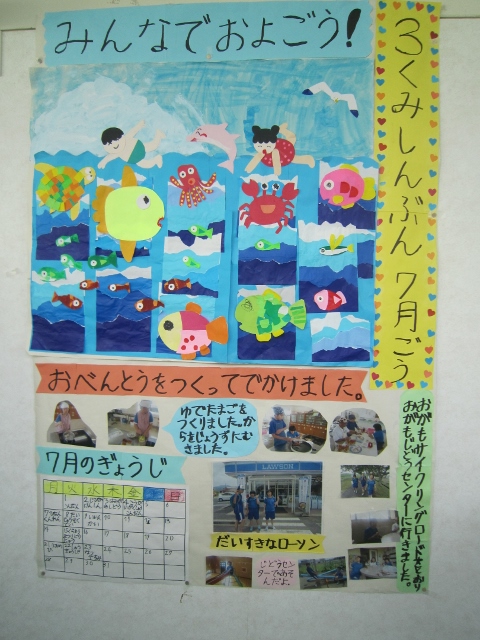 みんなでおよごう!
3くみしんぶん 7月ごう
おべんとうをつくってでかけました。
ゆでたまごを
つくりました。か
らをじょうずにむ
きました。
おがもサイクリングロードをとおり
おがもじどうセンターに行きました。
7月のぎょうじ
月 火 水 木 金 土 日
LAWSON
だいすきなローソン
じどうセン
ターであそ
んだよ。